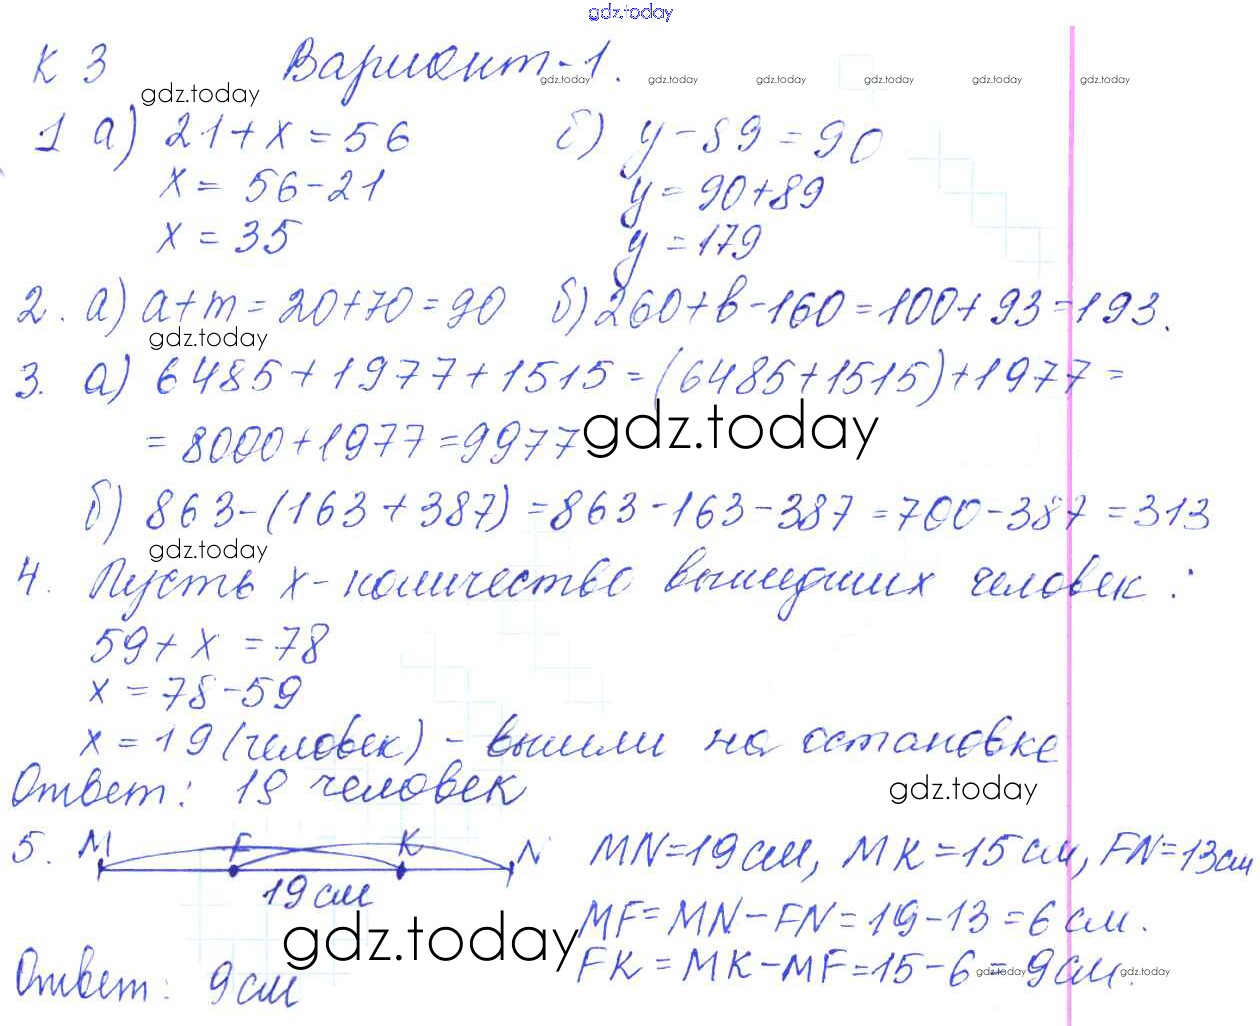 gdz.today
К 3 Вариант-1.
gdz.today gdz.today gdz.today gdz.today gdz.today gdz.today
gdz.today
1 а) 21+x=56 б) y-89=90
x=56-21 y=90+89
x=35 y=179
2. а) a+m=20+70=90 б) 260+b-160=100+93=193.
gdz.today
3. а) 6485+1977+1515=(6485+1515)+1977=
=8000+1977=9977 gdz.today
б) 863-(163+387)=863-163-387=700-387=313
gdz.today
4. Пусть x-количество вышедших человек:
59+x=78
x=78-59
x=19 (человек) - вышли на остановке
Ответ: 19 человек gdz.today
5. M F K N MN=19см, MK=15см, FN=13см
19см
MF=MN-FN=19-13=6см.
gdz.today
FK=MK-MF=15-6=9см.
gdz.today gdz.today
Ответ: 9см